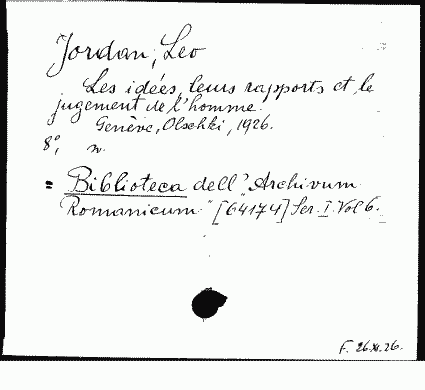 Jordan, Leo
Les idées, leurs rapports et le
jugement de l'homme.
Genève, Olschki, 1926.
8°, n.
= Biblioteca dell' "Archivum
Romanicum" [64174] Ser. I. Vol 6.
F. 26.XI.26.